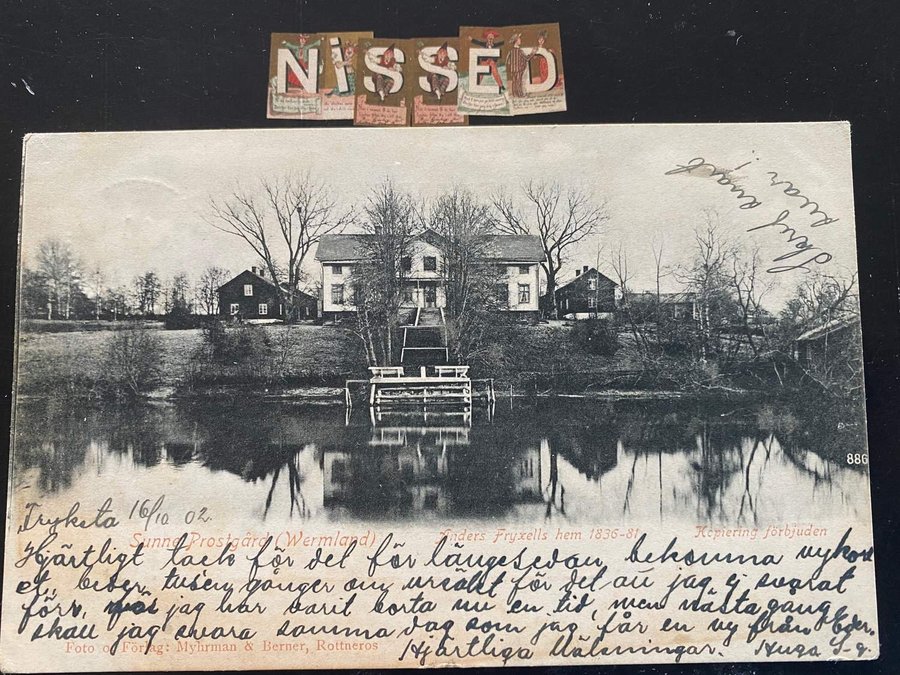 NiSSED
Skrif snart
snar!
886
Fryksta 16/10 02.
Sunne Prostgård (Wermland)
Anders Fryxells hem 1836-81
Kopiering förbjuden
Hjärtligt tack för det för längesedan bekomna vykort
et, beder tusen gånger om ursäkt för det att jag ej svarat
förr, jag har varit borta nu en tid, men nästa gång
skall jag svara samma dag som jag får en vy från Eder.
Foto o Förlag: Myhrman & Berner, Rottneros
Hjärtliga Hälsningar.